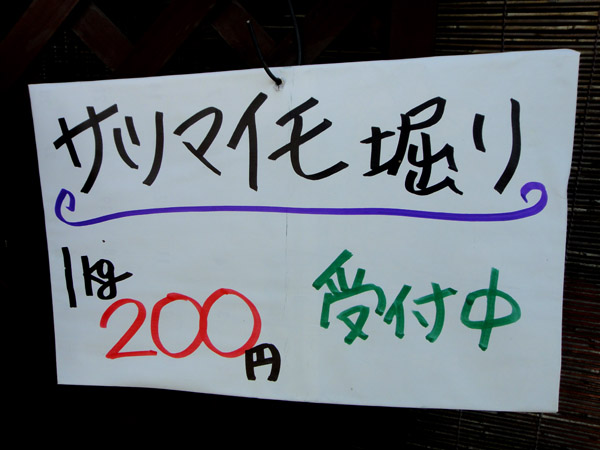 サツマイモ堀り
1kg
200円
受付中